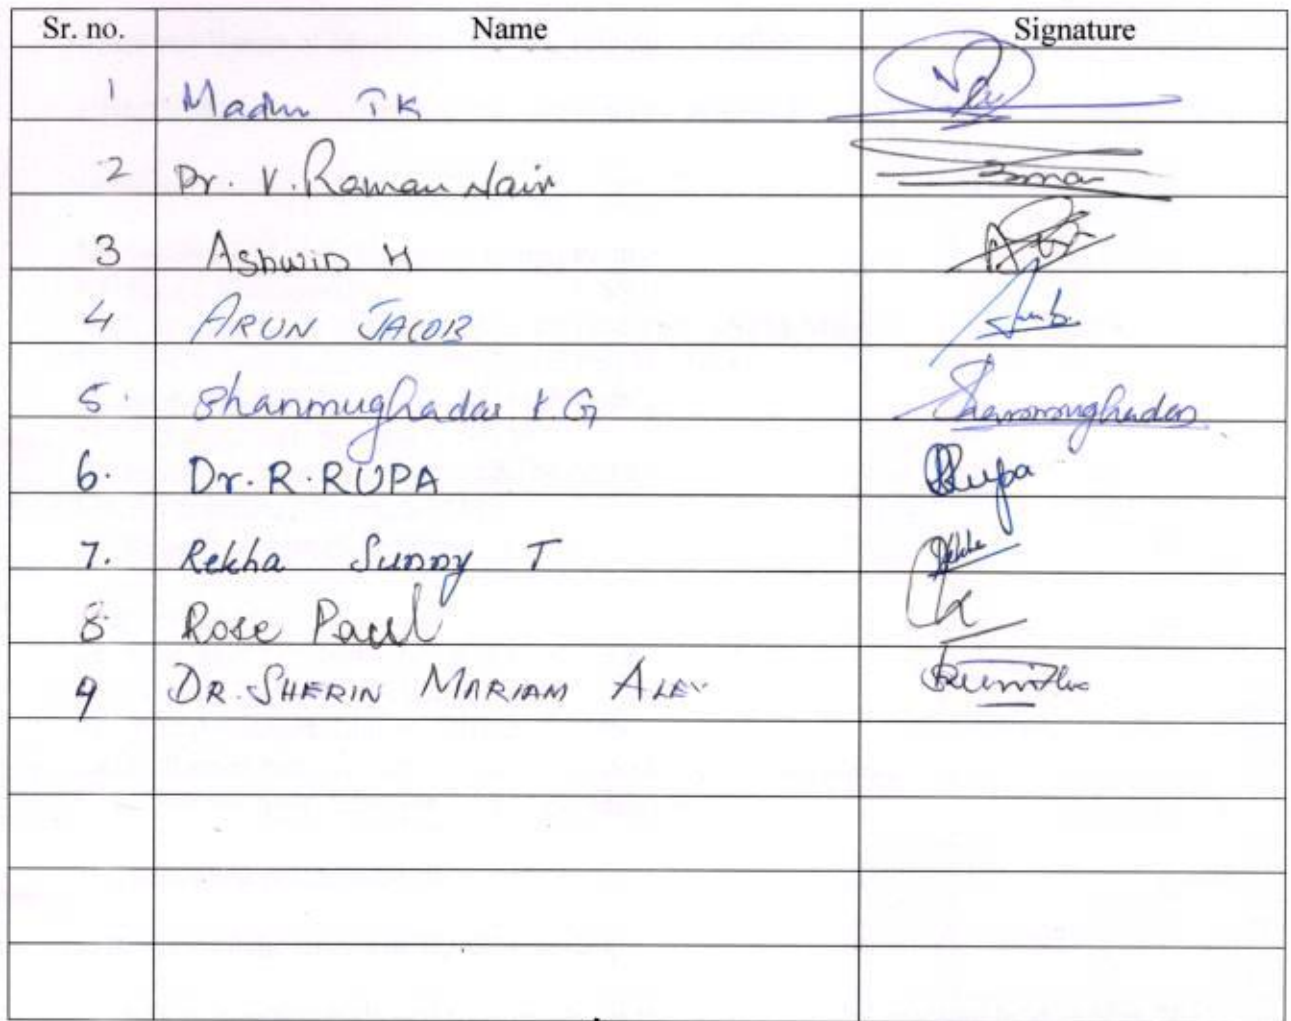 Sr. no. Name Signature
1 Madhu TK
2 Dr. V. Raman Nair
3 Ashwin H
4 ARUN JACOB
5. Shanmughadas K.G Shanmughadas
6. Dr. R. RUPA Rupa
7. Rekha Sunny T Rekha
8 Rose Paul
9 DR. SHERIN MARIAM ALEX